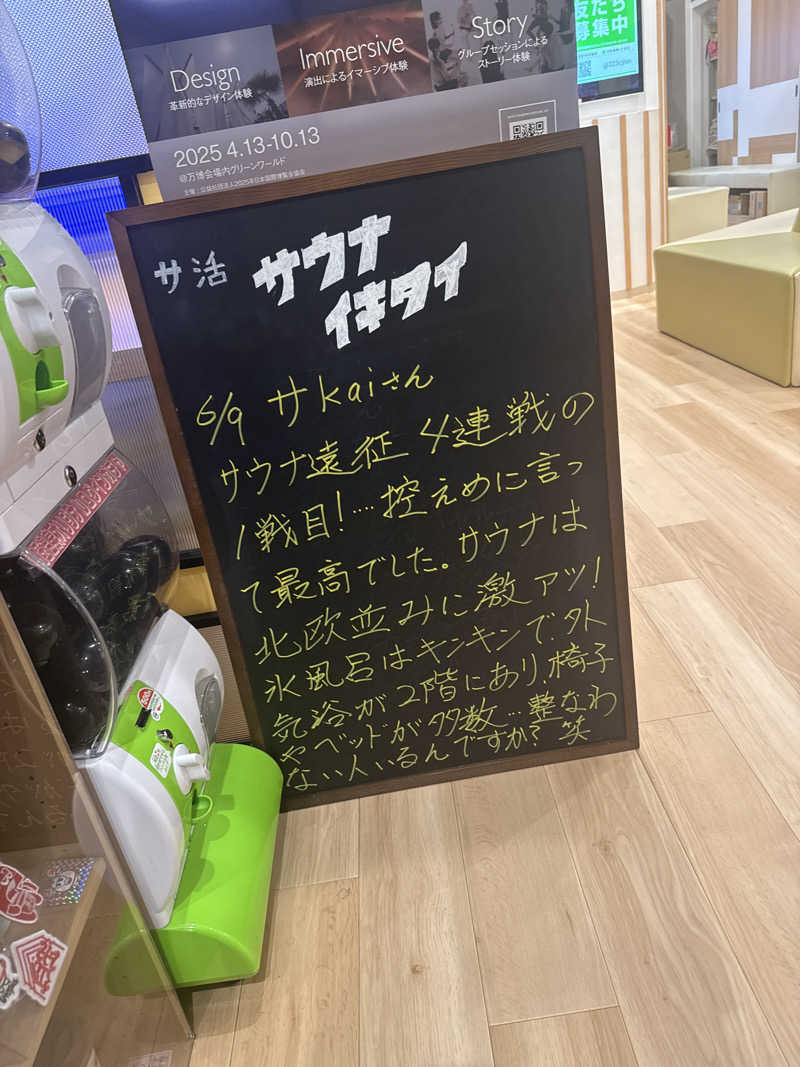 Design
革新的なデザイン体験
Immersive
演出によるイマーシブ体験
Story
グループセッションによる
ストーリー体験
友だち
募集中
2025 4.13-10.13
@万博会場内グリーンワールド
主催：公益社団法人2025年日本国際博覧会協会
サ活
サウナ
イキタイ
6/9 サkaiさん
サウナ遠征 4連戦の
1戦目!…控えめに言っ
て最高でした。サウナは
北欧並みに激アツ!
氷風呂はキンキンで、外
気浴が2階にあり、椅子
やベッドが多数…整なわ
ない人いるんですか?笑